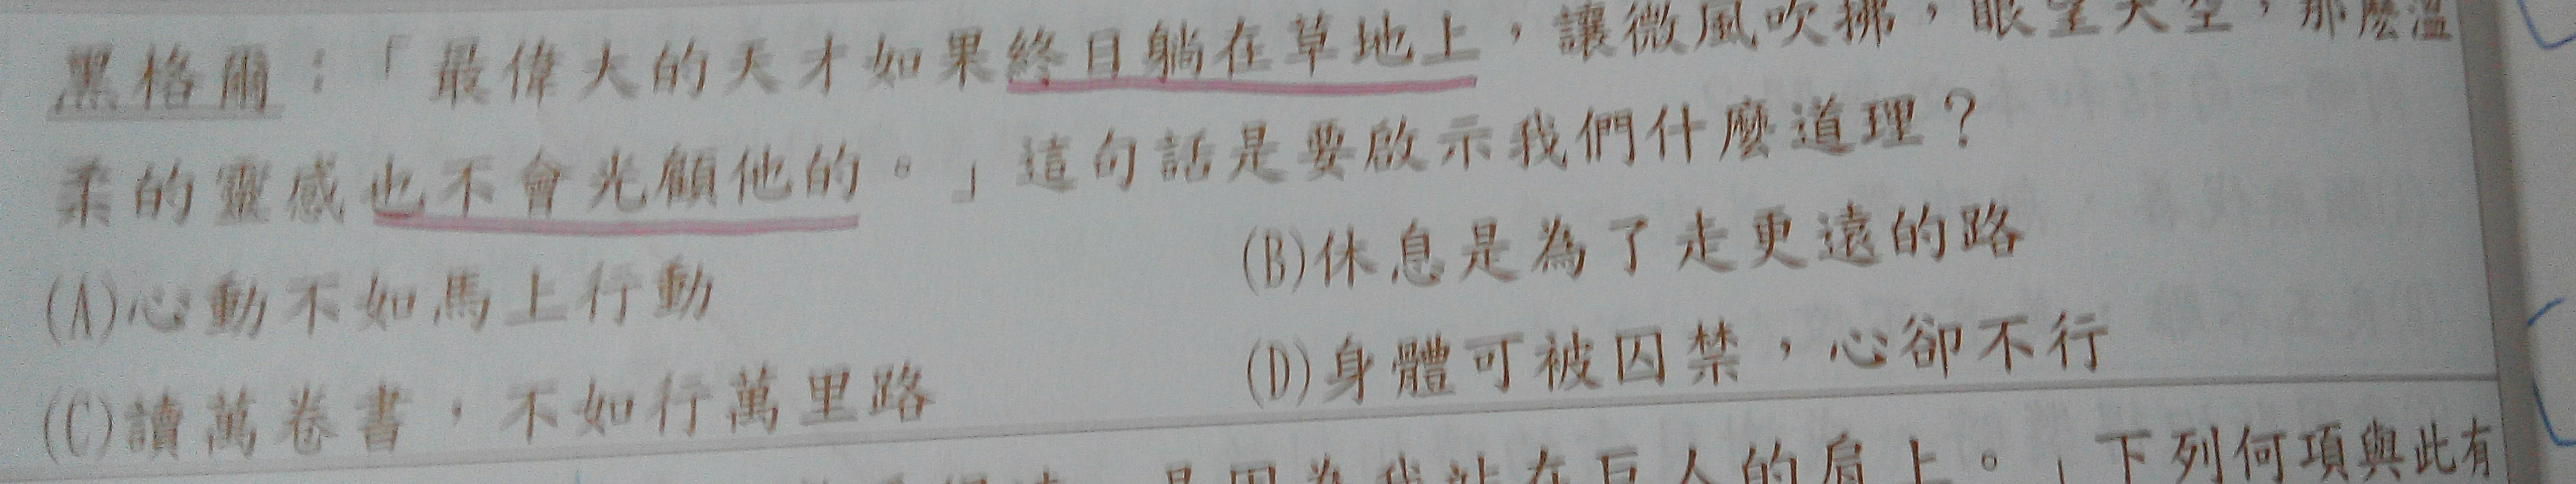 黑格爾：「最偉大的天才如果終日躺在草地上，讓微風吹拂，眼望天空，那麼溫
柔的靈感也不會光顧他的。」這句話是要啟示我們什麼道理？
(A)心動不如馬上行動
(B)休息是為了走更遠的路
(C)讀萬卷書，不如行萬里路
(D)身體可被囚禁，心卻不行
是因為我站在巨人的肩上。」下列何項與此有